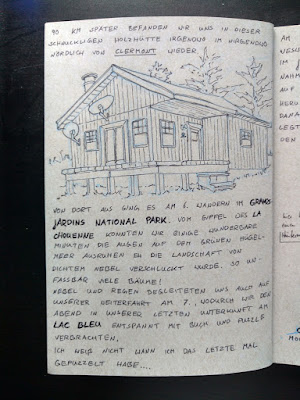 90 KM SPÄTER BEFANDEN WIR UNS IN DIESER
SCHNUCKLIGEN HOLZHÜTTE IRGENDWO IM NIRGENDWO
NÖRDLICH VON CLERMONT WIEDER.
VON DORT AUS GING ES AM 6. WANDERN IM GRANDS
JARDINS NATIONAL PARK. VOM GIPFEL DES LA
CHOUENNE KONNTEN WIR EINIGE WUNDERBARE
MINUTEN DIE AUGEN AUF DEM GRÜNEN HÜGEL-
MEER AUSRUHEN EH DIE LANDSCHAFT VON
DICHTEM NEBEL VERSCHLUCKT WURDE. SO UN-
FASSBAR VIELE BÄUME!
NEBEL UND REGEN BEGLEITETEN UNS AUCH AUF
UNSERER WEITERFAHRT AM 7., WODURCH WIR DEN
ABEND IN UNSERER LETZTEN UNTERKUNFT AM
LAC BLEU ENTSPANNT MIT BUCH UND PUZZLE
VERBRACHTEN,
ICH WEIß NICHT WANN ICH DAS LETZTE MAL
GEPUZZELT HABE....
AM
IM
NAHM
AUF
HERU
DANA
LEGT
DEN